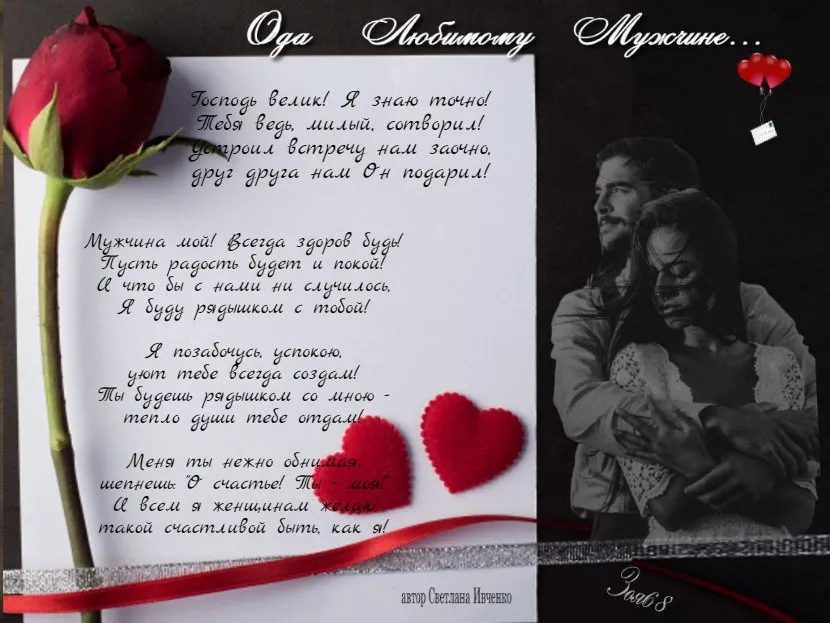 Ода Любимому Мужчине...
Господь велик! Я знаю точно!
Тебя ведь, милый, сотворил!
Устроил встречу нам заочно,
друг друга нам Он подарил!
Мужчина мой! Всегда здоров будь!
Пусть радость будет и покой!
И что бы с нами ни случилось,
Я буду рядышком с тобой!
Я позабочусь, успокою,
уют тебе всегда создам!
Ты будешь рядышком со мною -
тепло души тебе отдам!
Меня ты нежно обнимая,
шепнешь: "О счастье! Ты - моя!"
И всем я женщинам желаю
такой счастливой быть, как я!
автор Светлана Ивченко
Зоя68